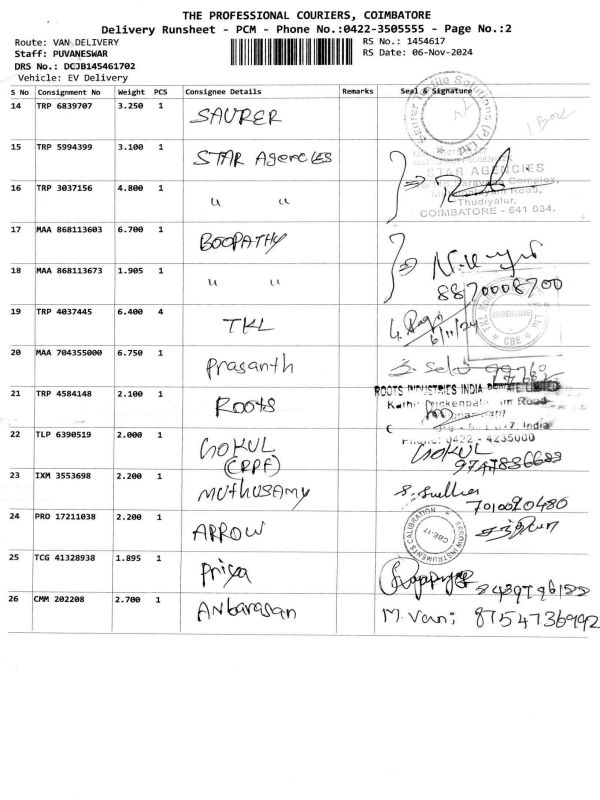 THE PROFESSIONAL COURIERS, COIMBATORE
Delivery Runsheet - PCM - Phone No.:0422-3505555 - Page No.:2
Route: VAN DELIVERY
RS No.: 1454617
Staff: PUVANESWAR
RS Date: 06-Nov-2024
DRS No.: DCJB145461702
Vehicle: EV Delivery
S No Consignment No Weight PCS Consignee Details Remarks Seal & Signature
14 TRP 6839707 3.250 1 SAURER 1 Box
15 TRP 5994399 3.100 1 STAR Agencies
STAR AGENCIES
Complex,
16 TRP 3037156 4.800 1 " "
Road,
Thudiyalur,
COIMBATORE - 641 034.
17 MAA 868113603 6.700 1 BOOPATHY
18 MAA 868113673 1.905 1 " " 8870008700
19 TRP 4037445 6.400 4 TKL 6/11/24
WAREHOUSE
CBE
20 MAA 704355000 6.750 1 Prasanth
21 TRP 4584148 2.100 1 Roots
ROOTS INDUSTRIES INDIA PRIVATE LIMITED
Road
India
Phone: 0422 - 4235000
22 TLP 6390519 2.000 1 GOKUL GOKUL
(CRPF)
23 IXM 3553698 2.200 1 Muthusamy 7010020480
24 PRO 17211038 2.200 1 ARROW
ARROW INSTRUMENTS CALIBRATION
CBE-17
25 TCG 41328938 1.895 1 Priya
26 CMM 202208 2.700 1 Anbarasan M. Vani 8754736992